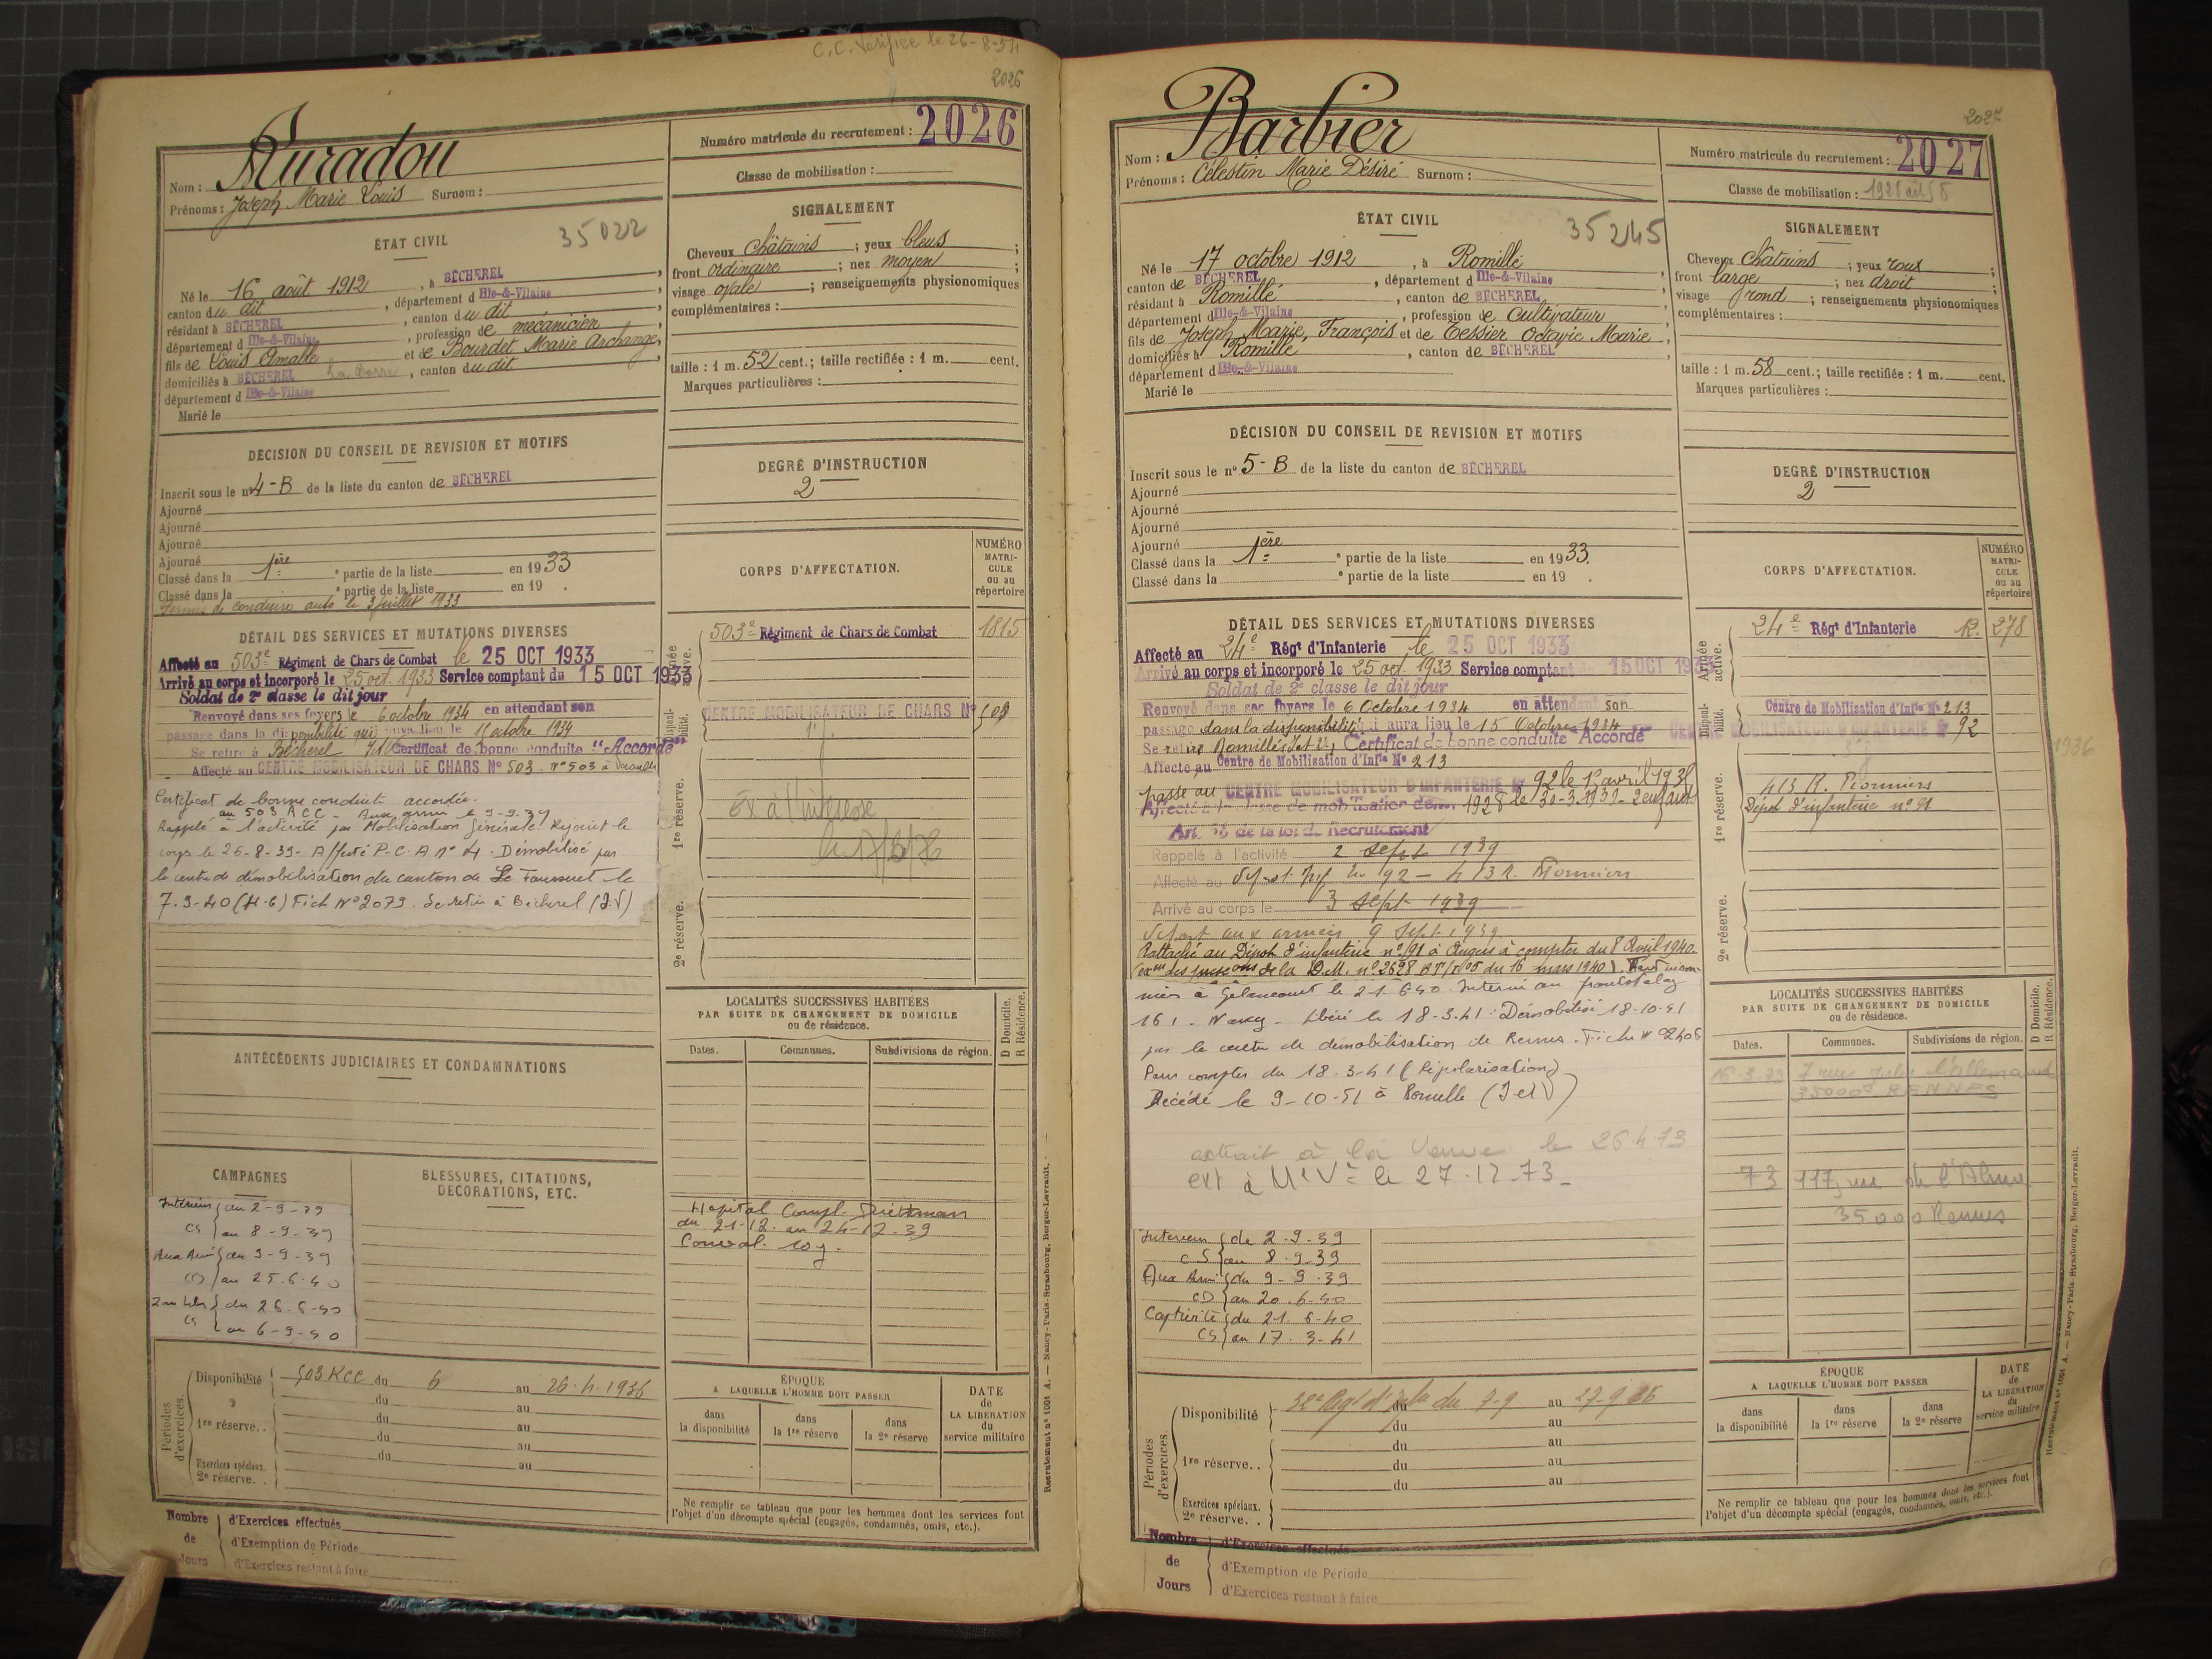 C.C. Vérifiée le 26-8-51
2026
Nom : Auradou
Prénoms : Joseph Marie Louis Surnom :
Numéro matricule du recrutement : 2026
Classe de mobilisation :
ÉTAT CIVIL
35022
Né le 16 août 1912, à BÉCHEREL
canton du dit, département d Ille-&-Vilaine
résidant à BÉCHEREL, canton du dit
département d Ille-&-Vilaine, profession de mécanicien
fils de Louis Amalle et de Bourdet Marie Archange,
domiciliés à BÉCHEREL La Barre, canton du dit
département d Ille-&-Vilaine
Marié le
SIGNALEMENT
Cheveux châtains ; yeux bleus ;
front ordinaire ; nez moyen ;
visage ovale ; renseignements physionomiques
complémentaires :
taille : 1 m. 52 cent.; taille rectifiée : 1 m. cent.
Marques particulières :
DÉCISION DU CONSEIL DE REVISION ET MOTIFS
Inscrit sous le n° 4-B de la liste du canton de BÉCHEREL
Ajourné
Ajourné
Ajourné
Ajourné
Classé dans la 1ère partie de la liste en 1933
Classé dans la partie de la liste en 19 .
Permis de conduire auto le 3 juillet 1933
DEGRÉ D'INSTRUCTION
2
DÉTAIL DES SERVICES ET MUTATIONS DIVERSES
Affecté au 503e Régiment de Chars de Combat le 25 OCT 1933
Arrivé au corps et incorporé le 25 oct. 1933 Service comptant du 15 OCT 1933
Soldat de 2e classe le dit jour
Renvoyé dans ses foyers le 6 octobre 1934 en attendant son
passage dans la disponibilité qui aura lieu le 15 octobre 1934
Se retire à Bécherel Certificat de bonne conduite "Accordé"
Affecté au CENTRE MOBILISATEUR DE CHARS N° 503 - N° 503 à Versailles
Certificat de bonne conduite accordée.
au 503 RCC - Aux armées le 9-9-39
Rappelé à l'activité par Mobilisation Générale. Rejoint le
corps le 26-8-39 - Affecté P.C.A n° 4. Démobilisé par
le centre de démobilisation du canton de Le Fousseret le
7-9-40 (H.G) Fich N° 2079. Se retire à Bécherel (I.V)
CORPS D'AFFECTATION.
NUMÉRO MATRICULE ou au répertoire
Armée active.
503e Régiment de Chars de Combat 1815
Disponibilité.
CENTRE MOBILISATEUR DE CHARS N° 503
1re réserve.
2e réserve.
ANTÉCÉDENTS JUDICIAIRES ET CONDAMNATIONS
LOCALITÉS SUCCESSIVES HABITÉES
PAR SUITE DE CHANGEMENT DE DOMICILE
ou de résidence.
D Domicile.
R Résidence.
Dates. Communes. Subdivisions de région.
Hopital Compl.
du 21-12 au 24-12-39
Conval. 10 j -
CAMPAGNES
Intérieur du 2-9-39
CS au 8-9-39
Aux Arm du 9-9-39
CD au 25-6-40
Zone libre du 26-6-40
CS au 6-9-40
BLESSURES, CITATIONS,
DÉCORATIONS, ETC.
Périodes d'exercices
Disponibilité 503 RCC du 6 au 26-4-1936
du au
1re réserve. . du au
du au
Exercices spéciaux. du au
2e réserve. .
ÉPOQUE
A LAQUELLE L'HOMME DOIT PASSER
dans la disponibilité
dans la 1re réserve
dans la 2e réserve
DATE de LA LIBÉRATION du service militaire
Ne remplir ce tableau que pour les hommes dont les services font
l'objet d'un décompte spécial (engagés, condamnés, omis, etc.).
Nombre de Jours
d'Exercices effectués
d'Exemption de Période
d'Exercices restant à faire
Recrutement n° 1051 A. — Nancy-Paris-Strasbourg, Berger-Levrault.
2027
Nom : Barbier
Prénoms : Célestin Marie Désiré Surnom :
Numéro matricule du recrutement : 2027
Classe de mobilisation :
ÉTAT CIVIL
35245
Né le 17 octobre 1912, à Romillé
canton de BÉCHEREL, département d Ille-&-Vilaine
résidant à Romillé, canton de BÉCHEREL
département d Ille-&-Vilaine, profession de Cultivateur
fils de Joseph Marie, François et de Tessier Octavie Marie
domiciliés à Romillé, canton de BÉCHEREL
département d Ille-&-Vilaine
Marié le
SIGNALEMENT
Cheveux châtains ; yeux roux ;
front large ; nez droit ;
visage rond ; renseignements physionomiques
complémentaires :
taille : 1 m. 58 cent.; taille rectifiée : 1 m. cent.
Marques particulières :
DÉCISION DU CONSEIL DE REVISION ET MOTIFS
Inscrit sous le n° 5-B de la liste du canton de BÉCHEREL
Ajourné
Ajourné
Ajourné
Ajourné
Classé dans la 1ère partie de la liste en 1933.
Classé dans la partie de la liste en 19 .
DEGRÉ D'INSTRUCTION
2
DÉTAIL DES SERVICES ET MUTATIONS DIVERSES
Affecté au 24e Régt d'Infanterie le 25 OCT 1933
Arrivé au corps et incorporé le 25 oct. 1933 Service comptant du 15 OCT 1933
Soldat de 2e classe le dit jour
Renvoyé dans ses foyers le 6 Octobre 1934 en attendant son
passage dans la disponibilité qui aura lieu le 15 Octobre 1934
Se retire Romillé I et V, Certificat de bonne conduite "Accordé"
Affecté au Centre de Mobilisation d'Infie N° 213
passe au CENTRE MOBILISATEUR D'INFANTERIE N° 92 le 1er avril 193
Affecté à la classe de mobilisation de 1928 le 30-3-1939 - 2 enfants
Art. 58 de la loi de Recrutement
Rappelé à l'activité 2 Sept 1939
Affecté au Dépôt Inf no 92 - 413 R. Pionniers
Arrivé au corps le 3 Sept 1939
Départ aux armées 9 Sept 1939
Rattaché au Dépôt d'infanterie n° 91 à Angers à compter du 8 Avril 1940.
des de la D.M. n° 2628 du 16 mars 1940).
à Gélaucourt le 21-6-40. Interné au frontstalag
161 - Nancy - Libéré le 18-3-41. Démobilisé 18-10-41
par le centre de démobilisation de Rennes. Fiche N° 2406
Pour compter du 18-3-41 (Régularisation)
Décédé le 9-10-51 à Romillé (I et V)
extrait à la Veuve le 26.4.73
ext à le 27-12-73 -
CORPS D'AFFECTATION.
NUMÉRO MATRICULE ou au répertoire
Armée active.
24e Régt d'Infanterie R. 278
Disponibilité.
Centre de Mobilisation d'Infie N° 213
CENTRE MOBILISATEUR D'INFANTERIE N° 92
1936
1re réserve.
413 R. Pionniers
Dépôt d'infanterie n° 91
2e réserve.
LOCALITÉS SUCCESSIVES HABITÉES
PAR SUITE DE CHANGEMENT DE DOMICILE
ou de résidence.
D Domicile.
R Résidence.
Dates. Communes. Subdivisions de région.
7 rue
35000 RENNES
73 117, rue de l'Alma
35000 Rennes
Intérieur de 2-9-39
CS au 8-9-39
Aux Arm du 9-9-39
CD au 20-6-40
Captivité du 21-6-40
CS au 17-3-41
Périodes d'exercices
Disponibilité du 7-9 au 27-9 36
du au
du au
1re réserve. . du au
du au
Exercices spéciaux.
2e réserve. .
ÉPOQUE
A LAQUELLE L'HOMME DOIT PASSER
dans la disponibilité
dans la 1re réserve
dans la 2e réserve
DATE de LA LIBÉRATION du service militaire
Ne remplir ce tableau que pour les hommes dont les services font
l'objet d'un décompte spécial (engagés, condamnés, omis, etc.).
Nombre de Jours
d'Exercices effectués
d'Exemption de Période
d'Exercices restant à faire
Recrutement n° 1051 A. — Nancy-Paris-Strasbourg, Berger-Levrault.